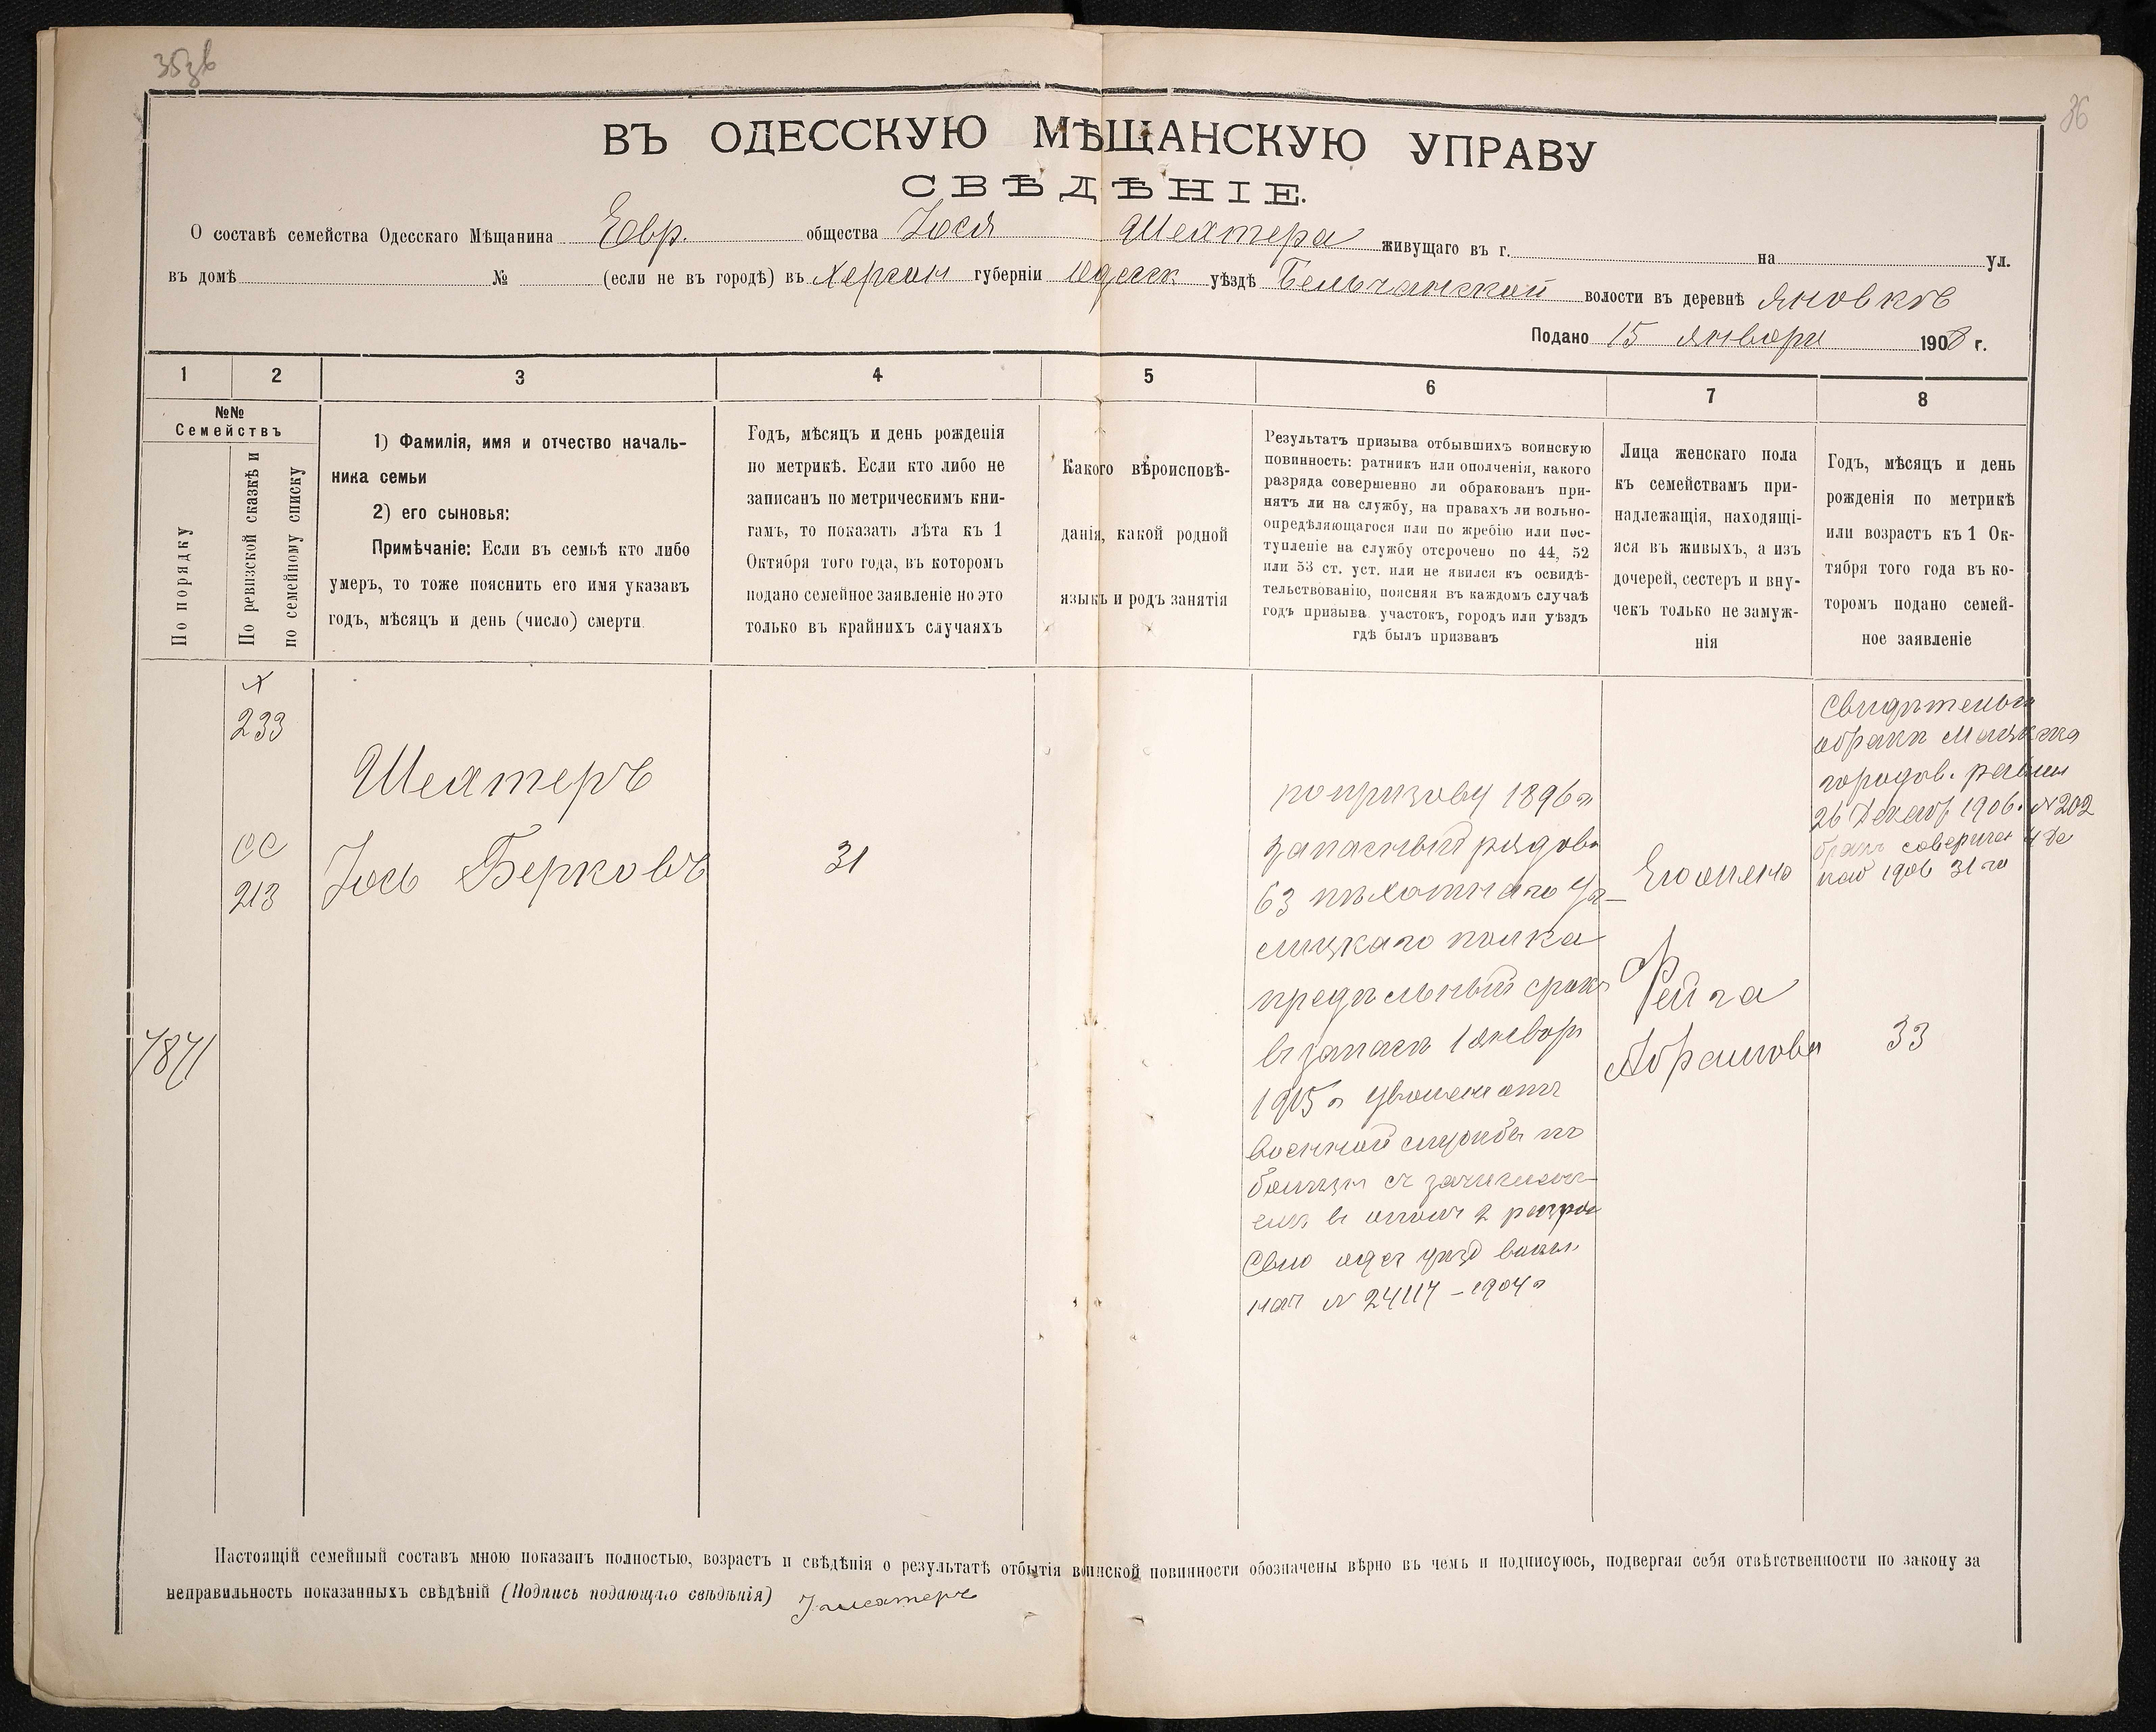 35зв
36
ВЪ ОДЕССКУЮ МѢЩАНСКУЮ УПРАВУ
СВѢДѢНІЕ.
О составѣ семейства Одесскаго Мѣщанина Евр. общества Іося Шехтера живущаго въ г. на ул.
въ домѣ № (если не въ городѣ) въ Херсон губерніи Одесск уѣздѣ Бельчанской волости въ деревнѣ Яновкѣ
Подано 15 Января 1908 г.
1 2 3 4 5 6 7 8
№№
Семействъ
По порядку
По ревизской сказкѣ и
по семейному списку
1) Фамилія, имя и отчество началь-
ника семьи
2) его сыновья:
Примѣчаніе: Если въ семьѣ кто либо
умеръ, то тоже пояснить его имя указавъ
годъ, мѣсяцъ и день (число) смерти
Годъ, мѣсяцъ и день рожденія
по метрикѣ. Если кто либо не
записанъ по метрическимъ кни-
гамъ, то показать лѣта къ 1
Октября того года, въ которомъ
подано семейное заявленіе но это
только въ крайнихъ случаяхъ
Какого вѣроисповѣ-
данія, какой родной
языкъ и родъ занятія
Результатъ призыва отбывшихъ воинскую
повинность: ратникъ или ополченія, какого
разряда совершенно ли обракованъ при-
нятъ ли на службу, на правахъ ли вольно-
опредѣляющагося или по жребію или пос-
тупленіе на службу отсрочено по 44, 52
или 53 ст. уст. или не явился къ освидѣ-
тельствованію, поясняя въ каждомъ случаѣ
годъ призыва участокъ, городъ или уѣздъ
гдѣ былъ призванъ
Лица женскаго пола
къ семействамъ при-
надлежащія, находящі-
яся въ живыхъ, а изъ
дочерей, сестеръ и вну-
чекъ только не замуж-
нія
Годъ, мѣсяцъ и день
рожденія по метрикѣ
или возрастъ къ 1 Ок-
тября того года въ ко-
торомъ подано семей-
ное заявленіе
233
СС
213
7871
Шехтеръ
Іось Берковъ
31
по призову 1896 г
запасный рядов
63 пѣхотнаго Уг-
лицкаго полка
предѣльный срокъ
въ запасѣ 1 январ
1915 г уволенъ отъ
военной службы по
болѣзни съ зачислен-
емъ въ ополч 2 разря
Свид одес уѣзд воин.
нач № 24117 - 1904 г
Его жена
Фейга
Абрамова
33
Свидѣтельств
о бракѣ
городов. раввин
26 Декаб 1906. № 202
бракъ совершен 4 де
каб 1906 31 го
Настоящій семейный составъ мною показанъ полностью, возрастъ и свѣдѣнія о результатѣ отбытія воинской повинности обозначены вѣрно въ чемъ и подписуюсь, подвергая себя отвѣтственности по закону за
неправильность показанныхъ свѣдѣній (Подпись подающаго свѣдѣнія) І Шехтеръ